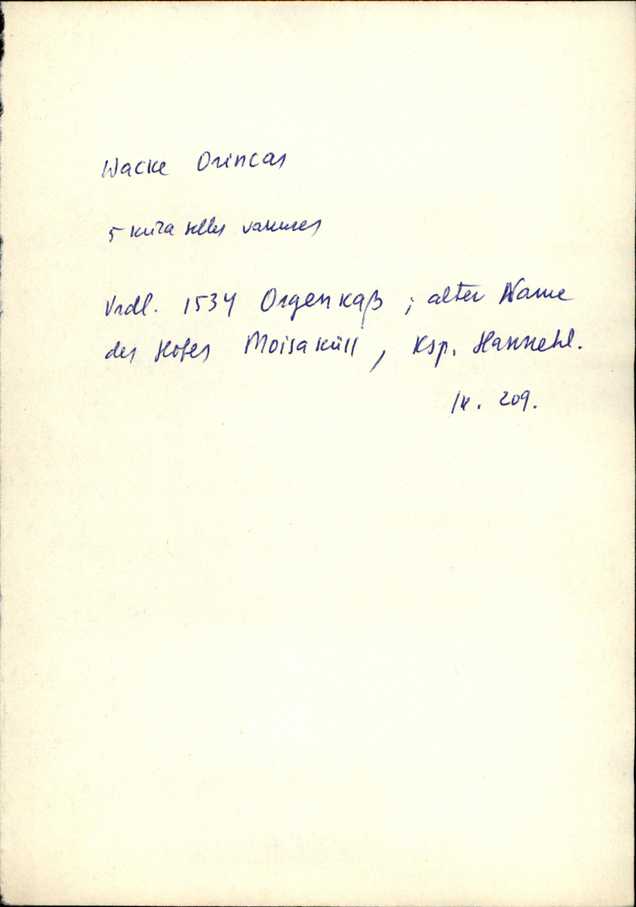 Wacke Orincas
5 küla selles vakuses
Urdl. 1534 Orgenkaß; alter Name
des Hofes Moisaküll, Ksp. Hannehl.
209.